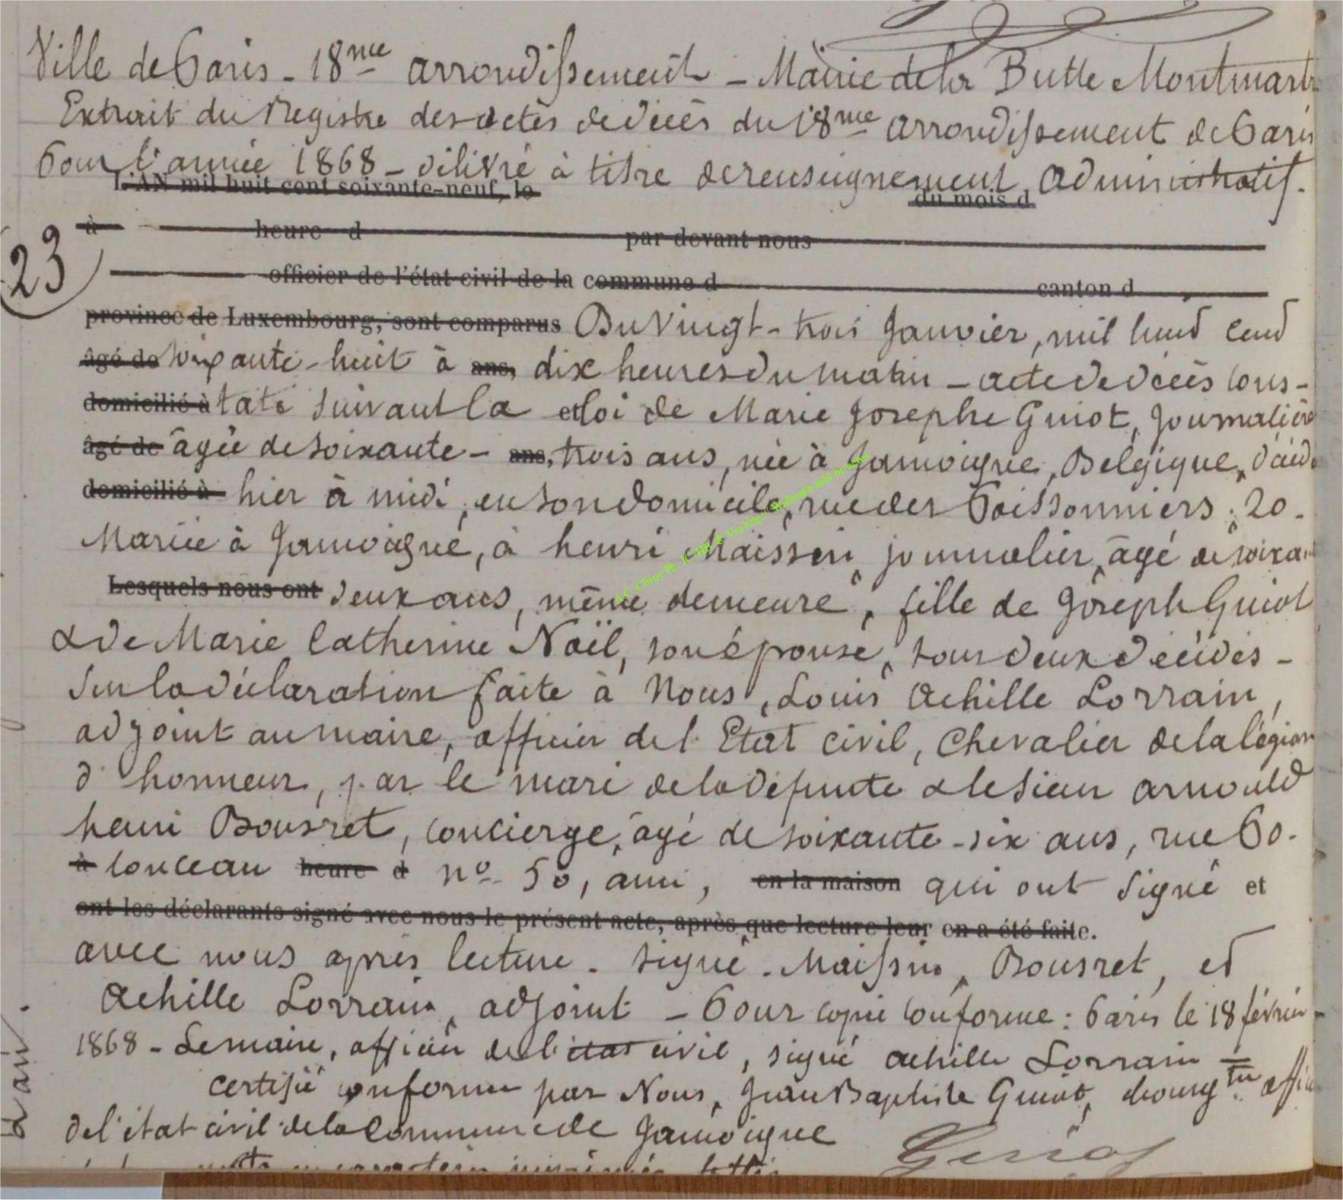 Ville de Paris - 18me arrondissement - Mairie de la Butte Montmartr
Extrait du Registre des actes de décès du 18me arrondissement de Paris
Pour l'année 1868 - délivré à titre de renseignement administratif.
L'AN mil huit cent soixante-neuf, le du mois d
à heure d par devant nous
23
officier de l'état civil de la commune d canton d
province de Luxembourg, sont comparus Du Vingt-trois Janvier, mil huit cent
âgé de soixante-huit à ans, dix heures du matin - acte de décès cons-
domicilié à taté suivant la et loi de Marie Josephe Guiot, journalière
âgé de âgée de soixante - ans, trois ans, née à Jamoigne, Belgique, décéd
domicilié à hier à midi, en son domicile, rue des Poissonniers, 20.
Mariée à Jamoigne, à henri Maissin, journalier, âgé de soixan
Lesquels nous ont deux ans, même demeure, fille de Joseph Guiot
& de Marie Catherine Noël, son épouse, tous deux décédés -
Sur la déclaration faite à Nous, Louis Achille Lorrain,
adjoint au maire, officier de l'Etat civil, Chevalier de la légion
d'honneur, par le mari de la défunte & le sieur arnould
henri Bousret, concierge, âgé de soixante-six ans, rue Po-
à lonceau heure d no 50, ami, en la maison qui ont signé et
ont les déclarants signé avec nous le présent acte, après que lecture leur en a été faite.
avec nous après lecture. signé. Maissin, Bousret, et
Achille Lorrain, adjoint - Pour copie conforme : Paris le 18 février
1868 - Le maire, officier de l'état civil, signé Achille Lorrain =
certifié conforme par Nous, Jean Baptiste Guiot, bourgtre offici
de l'état civil de la Commune de Jamoigne
Guiot